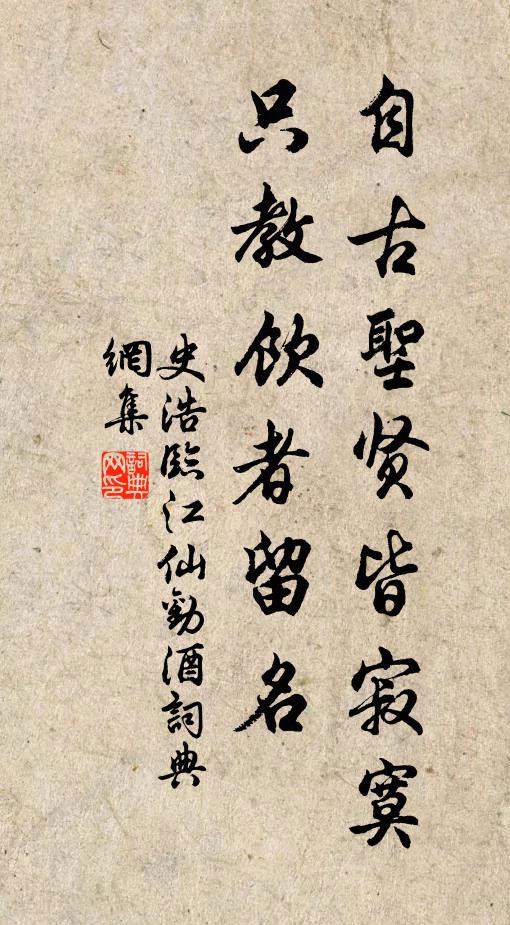 自古聖贤皆寂寞
只教飲者留名
史浩臨江仙勸酒詞典
網集
詞典
网印